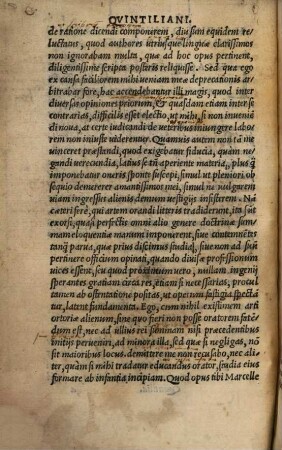 QVINTILIANI.
de ratione dicendi componerem, diu sum equidem re-
luctatus, quod authores utriusque linguæ clarissimos
non ignorabam multa, quæ ad hoc opus pertinent,
diligentissime scripta posteris reliquisse. Sed qua ego
ex causa faciliorem mihi ueniam meæ deprecationis ar-
bitrabar fore, hac accendebantur illi magis, quod inter
diuersas opiniones priorum, & quasdam etiam inter se
contrarias, difficilis esset electio, ut mihi, si non inueniē
di noua, at certe iudicandi de ueteribus iniungere labo
rem non iniuste uiderentur. Quamuis autem non tā me
uinceret præstandi, quod exigebatur fiducia, quàm ne-
gandi uerecundia, latius se tñ aperiente materia, plus q̃
imponebatur oneris sponte suscepi, simul ut pleniori ob
sequio demererer amantissimos mei, simul ne uulgarem
uiam ingressus alienis demum uestigijs insisterem. Nā
cæteri ferè, qui artem orandi litteris tradiderunt, ita sūt
exorsi, quasi perfectis omni alio genere doctrinæ sum-
mam eloquentiæ manum imponerent, siue contemnentes
tanq̃ parua, quæ prius discimus studia, siue non ad suū
pertinere officium opinati, quando diuisæ professionum
uices essent, seu quod proximum uero, nullam ingenij
sperantes gratiam circa res, etiam si necessarias, procul
tamen ab ostentatione positas, ut operum fastigia spectē
tur, latent fundamenta. Ego, cum nihil existimem arti
oratoriæ alienum, sine quo fieri non posse oratorem fatē
dum est, nec ad ullius rei summam nisi præcedentibus
initijs perueniri, ad minora illa, sed quæ si negligas, nō
sit maioribus locus, demittere me non recusabo, nec ali-
ter, quàm si mihi tradatur educandus orator, studia eius
formare ab infantia, incipiam. Quod opus tibi Marcelle